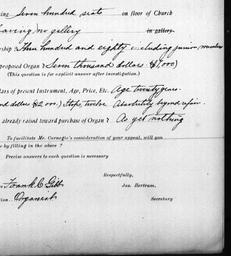 Seven hundred seats on floor of Church
Having no gallery in gallery.
ship Three hundred and eighty excluding junior members
proposed Organ? Seven thousand dollars ($7,000)
(This question is for explicit answer after investigation.)
lars of present Instrument, Age, Price, Etc. Age twenty years.
and dollars $2,000. Stops, twelve Absolutely beyond repair.
already raised toward purchase of Organ? As yet nothing
To facilitate Mr. Carnegie's consideration of your appeal, will you
be by filling in the above?
Precise answers to each question is necessary
Respectfully,
Frank C. Jas. Bertram,
Organist Secretary